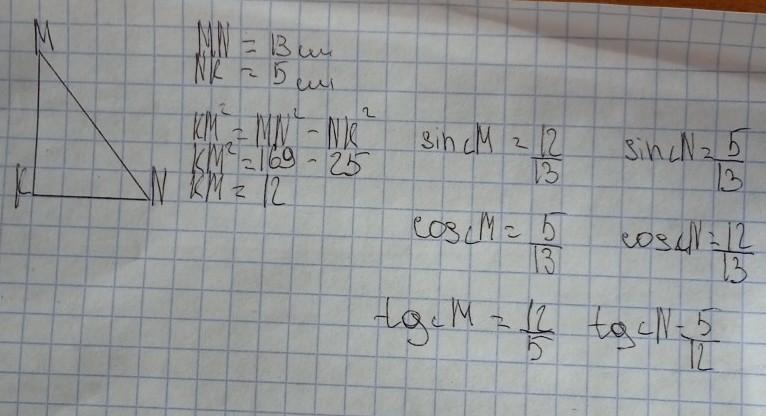 M
K
N
MN = 13 см
NK = 5 см
KM² = MN² - NK²
KM² = 169 - 25
KM = 12
sin∠M = 12/13
sin∠N = 5/13
cos∠M = 5/13
cos∠N = 12/13
tg∠M = 12/5
tg∠N = 5/12